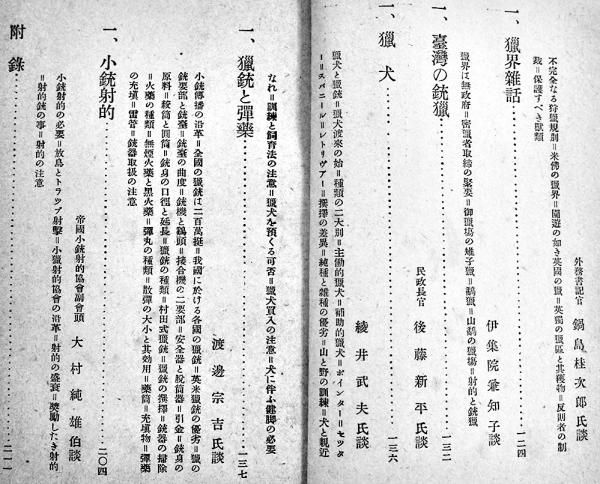 外務書記官 鍋島桂次郎氏談
不完全なる狩獵規則＝米佛の獵界＝園遊の如き英國の獵＝英獨の獵區と其獲物＝反則者の制
裁＝保護すべき獸類
一、獵界雜話‥‥‥‥‥‥‥‥一二四
伊集院兼知子談
獵界は無政府＝密獵者取締の緊要＝御獵場の雉子獵＝鷸獵＝山鷸の獵場＝射的と銃獵
一、臺灣の銃獵‥‥‥‥‥‥‥‥一三二
民政長官 後藤新平氏談
一、獵犬‥‥‥‥‥‥‥‥一三六
綾井武夫氏談
獵犬と獵銃＝獵犬渡來の始＝種類の二大別＝主働的獵犬＝補助的獵犬＝ポインター＝セッタ
ー＝スパニール＝レトリヴアー＝撰擇の差異＝純種と雜種の優劣＝山と野の訓練＝犬と親近
なれ＝訓練と飼育法の注意＝獵犬を預くる可否＝獵犬買入の注意＝犬に伴ふ健脚の必要
一、獵銃と彈藥‥‥‥‥‥‥‥‥一三七
渡邊宗吉氏談
小銃傳播の沿革＝全國の獵銃は二百萬挺＝我國に於ける各國の獵銃＝英米獵銃の優劣＝獵の
銃要部と銃臺＝銃臺の曲度＝銃機と鷄頭＝接合機の二要部＝安全器と脫筒器＝引金＝銃身の
原料＝絞筒と圓筒＝銃身の口徑と延長＝獵銃の種類＝村田式獵銃＝獵銃の撰擇＝銃器の掃除
＝火藥の種類＝無煙火藥と黑火藥＝彈丸の種類＝散彈の大小と其効用＝藥筒＝充填物＝彈藥
の充填＝雷管＝銃器取扱の注意
一、小銃射的‥‥‥‥‥‥‥‥二〇四
帝國小銃射的協會副會頭 大村純雄伯談
小銃射的の必要＝放鳥とトラップ射擊＝小獵射的協會の沿革＝射的の盛衰＝奬勵したき射的
＝射的銃の事＝射的の注意
附錄‥‥‥‥‥‥‥‥二一一